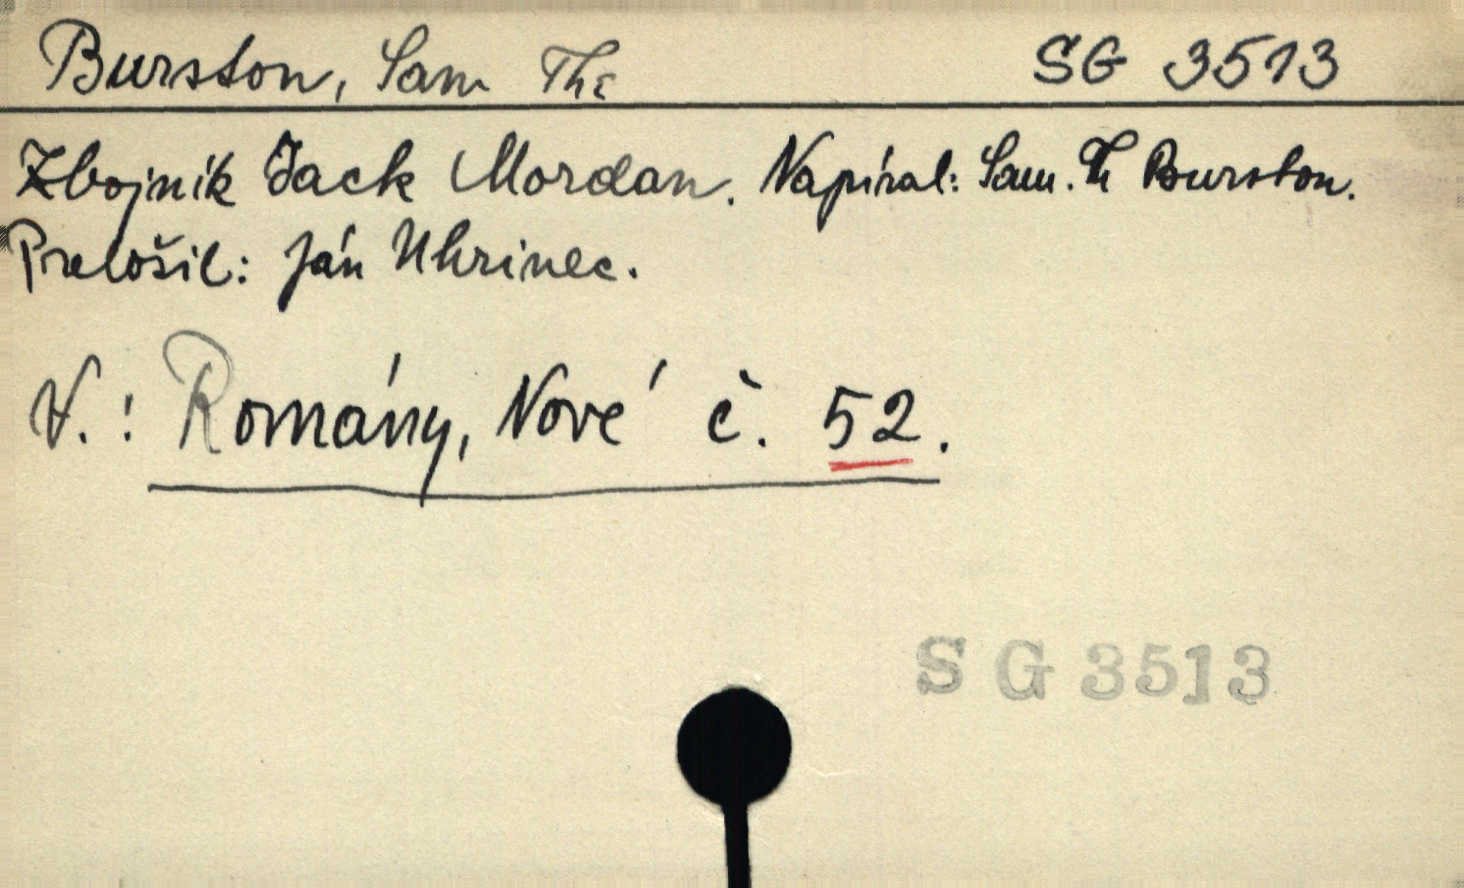 Burston, Sam Th. SG 3513
Zbojník Jack Mordan. Napísal: Sam. Th Burston.
Preložil: Ján Uhrinec.
V.: Romány, Nové č. 52.
SG 3513